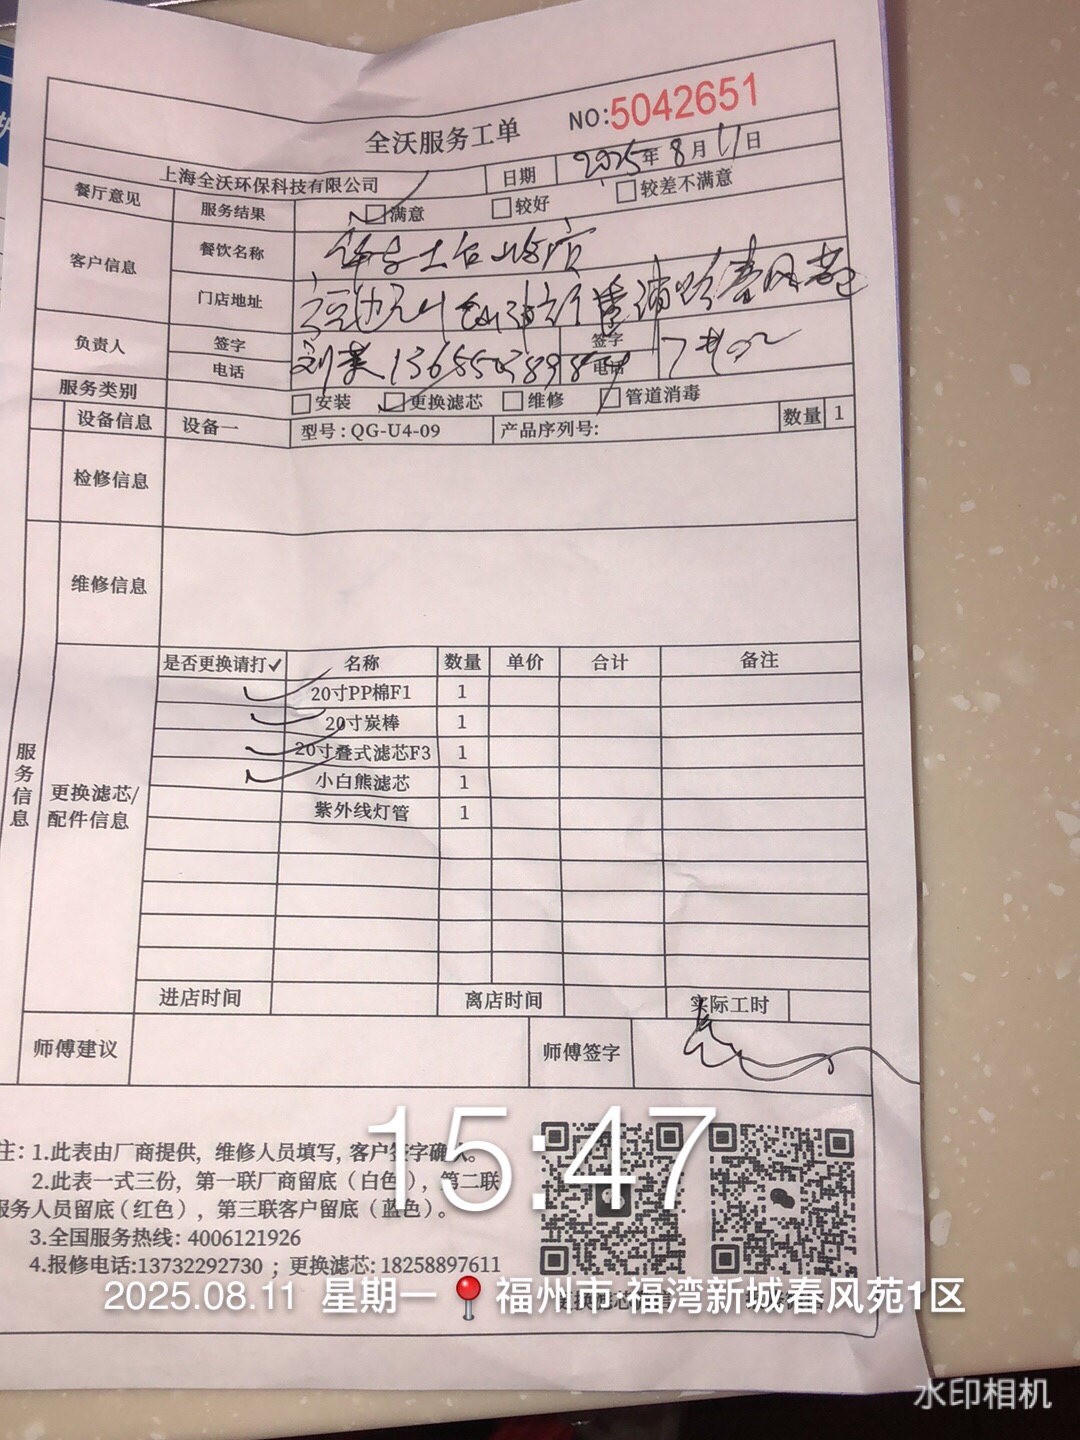 全沃服务工单
NO:5042651
上海全沃环保科技有限公司 日期 2025年8月11日
餐厅意见 服务结果 满意 较好 较差不满意
客户信息 餐饮名称
门店地址
负责人 签字 签字
电话 电话
服务类别 安装 更换滤芯 维修 管道消毒
设备信息 设备一 型号:QG-U4-09 产品序列号: 数量 1
检修信息
维修信息
服务信息
更换滤芯/
配件信息
是否更换请打✓ 名称 数量 单价 合计 备注
✓ 20寸PP棉F1 1
✓ 20寸炭棒 1
✓ 20寸叠式滤芯F3 1
✓ 小白熊滤芯 1
紫外线灯管 1
进店时间 离店时间 实际工时
师傅建议 师傅签字
注: 1.此表由厂商提供, 维修人员填写, 客户签字确认。
2.此表一式三份, 第一联厂商留底(白色), 第二联
服务人员留底(红色), 第三联客户留底(蓝色)。
3.全国服务热线: 4006121926
4.报修电话:13732292730 ; 更换滤芯: 18258897611
15:47
2025.08.11 星期一 福州市·福湾新城春风苑1区
水印相机